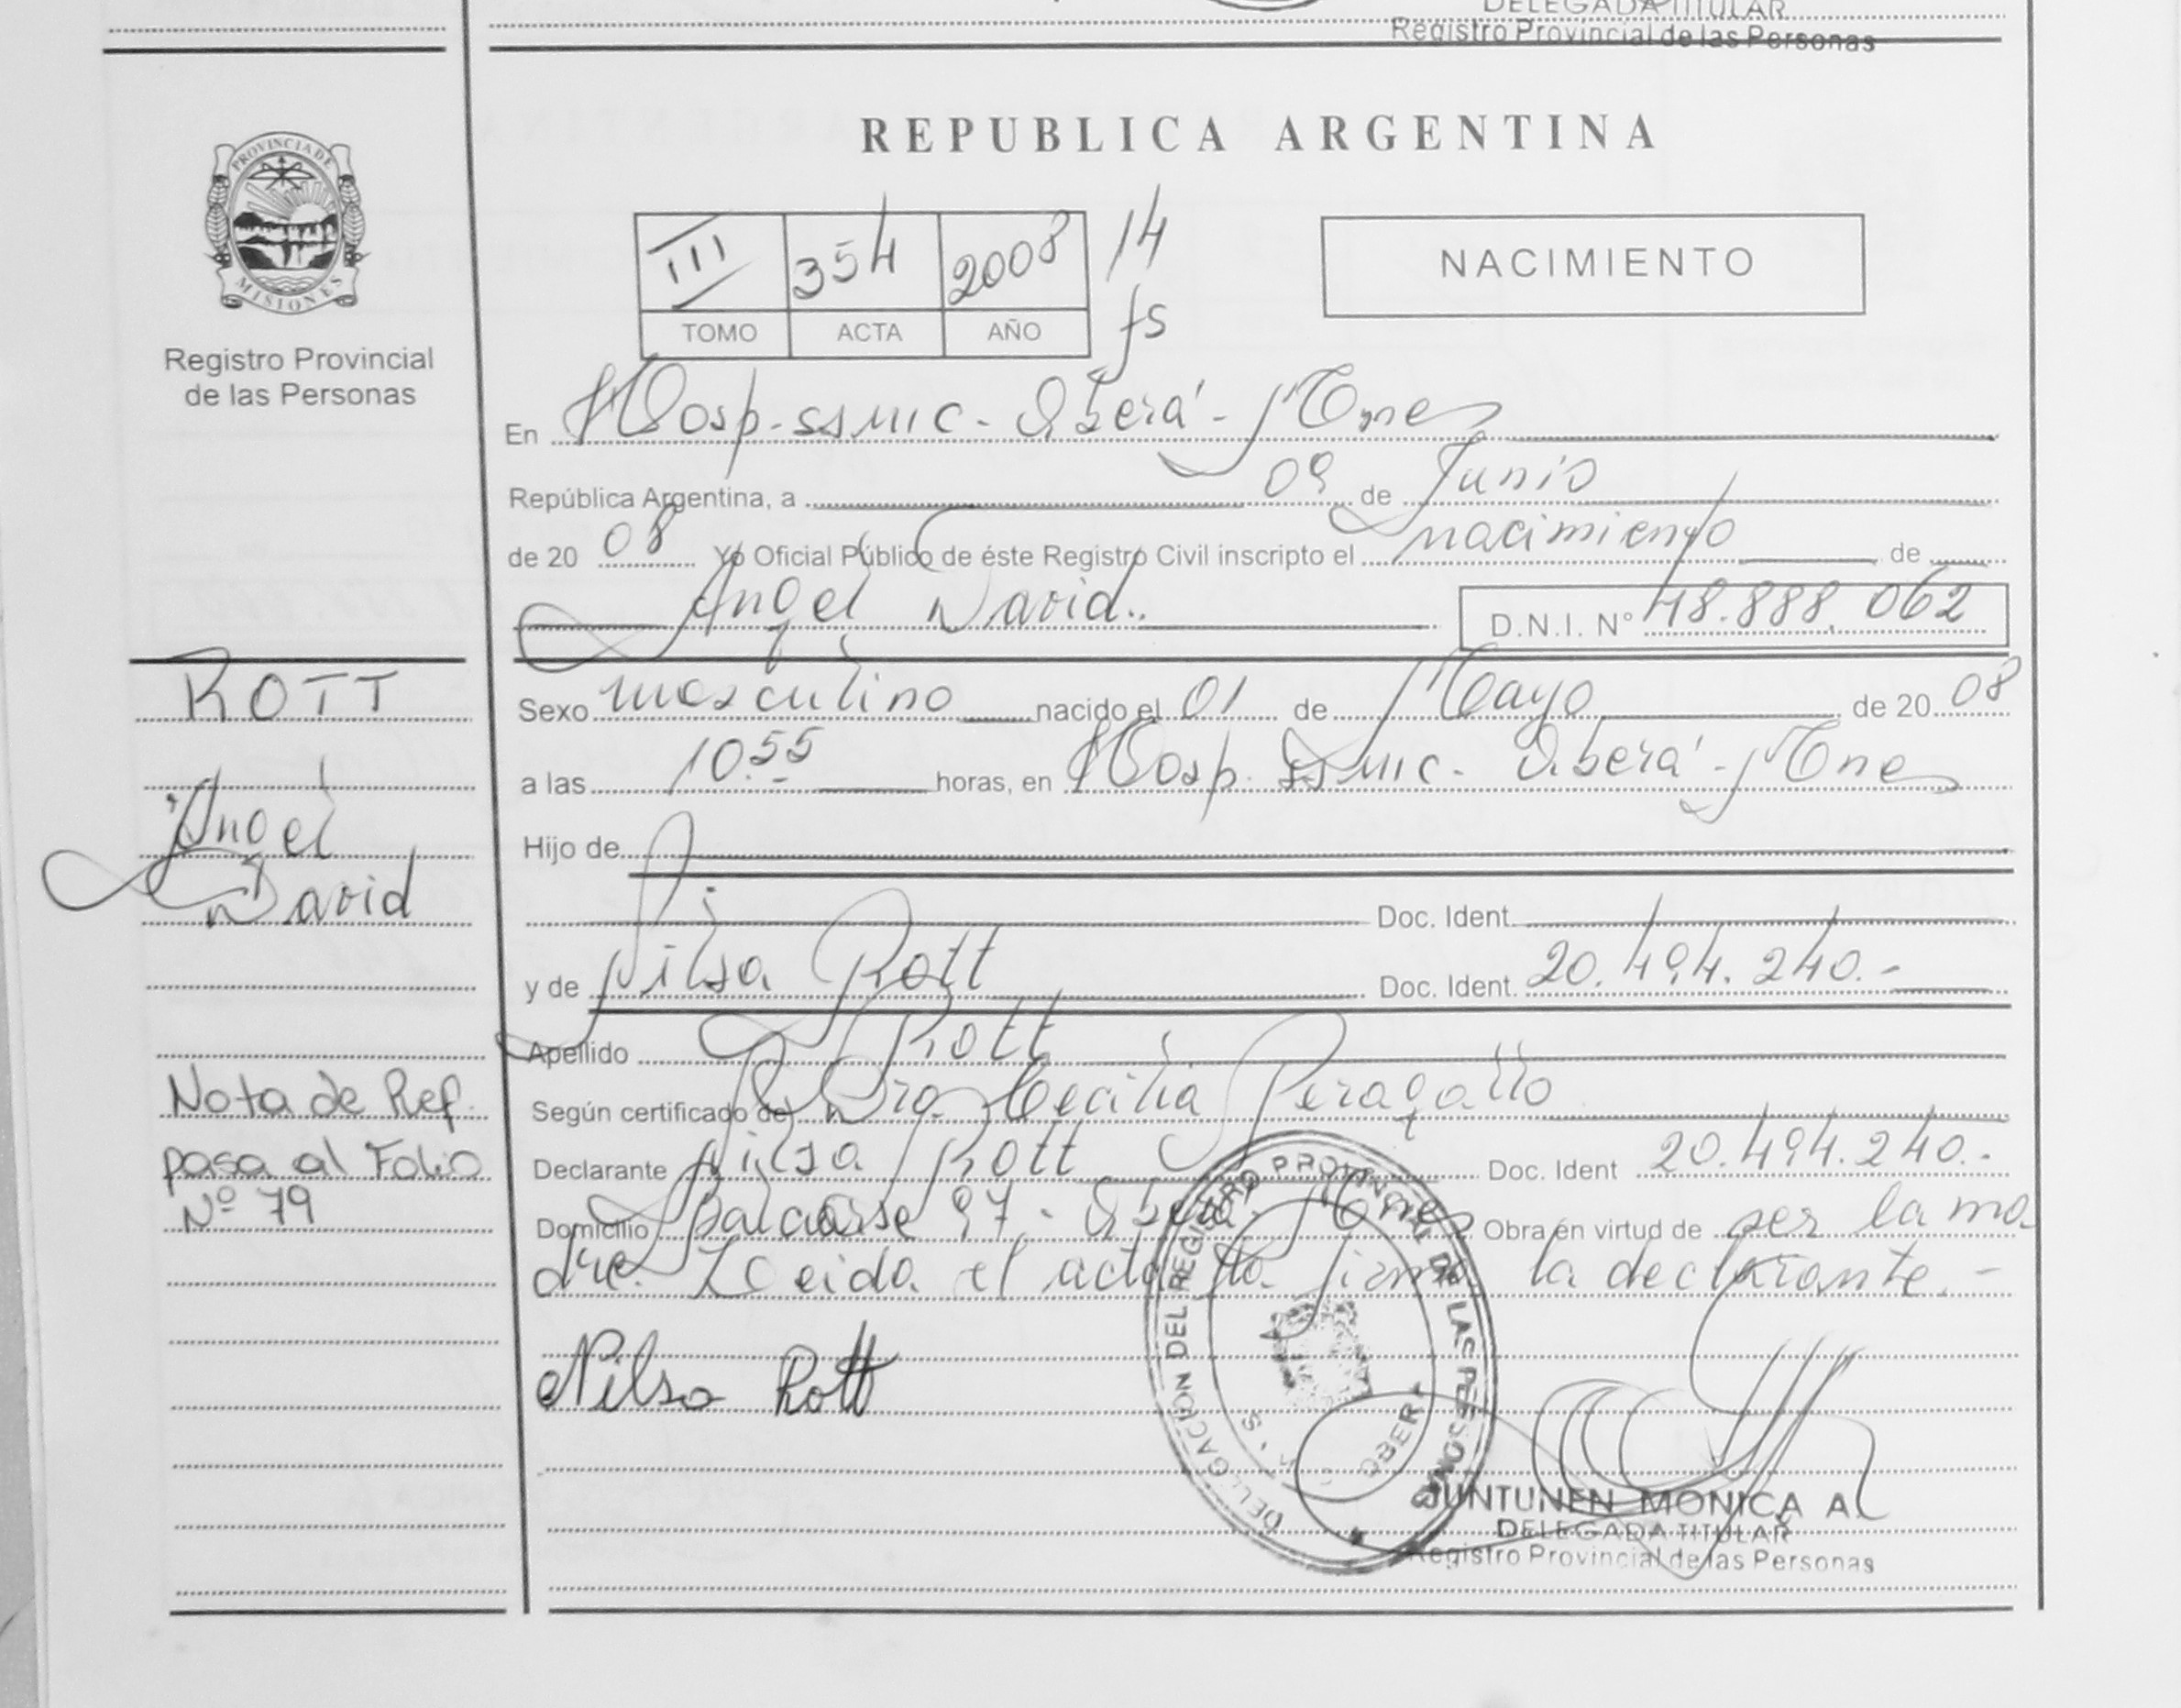 DELEGADA TITULAR
Registro Provincial de las Personas
PROVINCIA DE
MISIONES
Registro Provincial
de las Personas
REPUBLICA ARGENTINA
III 354 2008 14
TOMO ACTA AÑO fs
NACIMIENTO
En Hosp. ssmic - Oberá - Mnes
República Argentina, a 09 de Junio
de 20 08 Yo Oficial Público de éste Registro Civil inscripto el nacimiento de
Angel David.. D.N.I. Nº 48.888.062
ROTT
Angel
David
Sexo masculino nacido el 01 de Mayo de 20 08
a las 10.55 horas, en Hosp. ssmic - Oberá - Mnes
Hijo de
Doc. Ident.
y de Nilsa Rott Doc. Ident. 20.494.240.-
Apellido Rott
Nota de Ref.
pasa al Folio
Nº 79
Según certificado de Dra. Cecilia Peragallo
Declarante Nilsa Rott Doc. Ident 20.494.240.-
Domicilio 97 - Oberá - Mnes Obra en virtud de ser la ma
dre. Leida el acta la firma la declarante.-
Nilsa Rott
DELEGACION DEL REGISTRO PROVINCIAL DE LAS PERSONAS
OBERA
JUNTUNEN MONICA A
DELEGADA TITULAR
Registro Provincial de las Personas